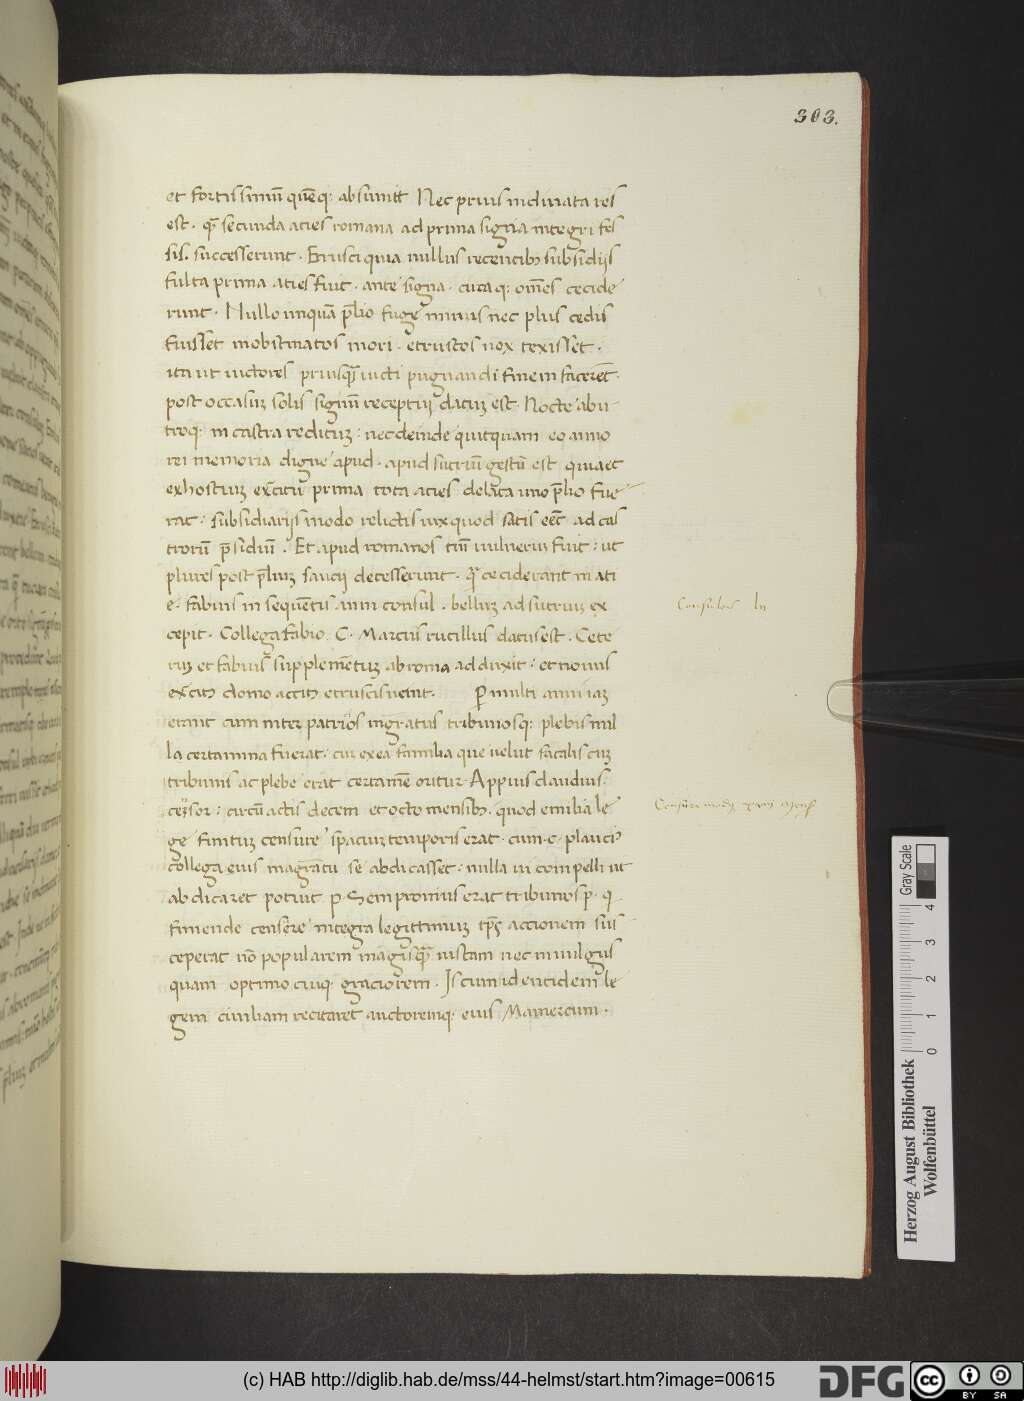 303.
et fortissimũ quẽq; absumit Nec prius inclinata res
est. quã secunda acies romana ad prima signa integri fes
sis. successerunt. Etrusci quia nullus recentibꝫ subsidijs
fulta prima acies fuit. ante signa. circaq; om̃es cecide
runt. Nullo unquã p̃lio fuge minus nec plus cedis
fuisset in obstinatos mori. etruscos nox texisset.
ita ut uictores priusquã uicti pugnandi finem facerẽt.
post occasuꝫ solis signũ receptui datuꝫ est. Nocte ab u
troq; in castra redituꝫ: nec deinde quicquam eo anno
rei memoria digne apud. apud sutriũ gestũ est quia et
ex hostiuꝫ exc̃itu prima tota acies deleta uno p̃lio fue
rat: subsidiarijs modo relictis uix quod satis eẽt ad cas
trorũ p̃sidiũ. Et apud romanos tm̃ uulnerũ fuit: ut
plures post p̃liuꝫ saucij decesserunt. quã ceciderant in aci
e. fabius insequentis anni consul. belluꝫ ad sutriuꝫ ex
cepit. Collega fabio C. Marcius rutilius datus est. Cete
ruꝫ et fabius supplemẽtuꝫ ab roma adduxit: et nouus
exc̃itꝰ domo accitꝰ etruscis uenit. Per multi anni iaꝫ
erant cum inter patrios mgratus tribunosq; plebis nul
la certamina fuerat. cur ex ea familia que uelut fatalis cuꝫ
tribunis ac plebe erat certamẽ oritur. Appius claudius.
cẽsor: circũactis decem et octo mensibꝫ. quod emilia le
ge finituꝫ censure spaciuꝫ temporis erat. cum. c. plaucius
collega eius magr̃atu se abdicasset. nulla ui compelli ut
abdicaret potuit p. Sempronius erat tribunus p. qi
finiende censere integra legittimuꝫ tp̃s accionem sus
ceperat nõ popularem magisquã iustam nec in uulgus
quam optimo cuiq; graciorem. Is cum identidem le
gem emiliam recitaret auctoremq; eius Mamercum.
Consules lii
Herzog August Bibliothek
Wolfenbüttel
Gray Scale
0 1 2 3 4
(c) HAB http://diglib.hab.de/mss/44-helmst/start.htm?image=00615
DFG
cc BY SA